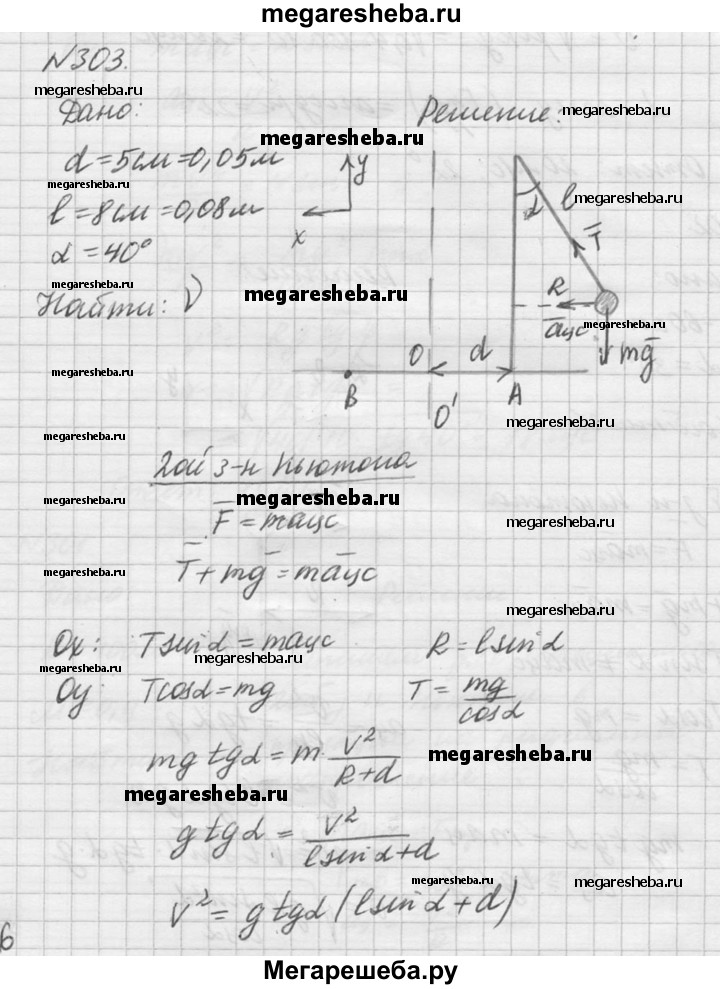 megaresheba.ru
N303.
megaresheba.ru
Дано: Решение: megaresheba.ru
megaresheba.ru
d=5см=0,05м y
megaresheba.ru l
α megaresheba.ru
l=8см=0,08м x T̅
α=40°
megaresheba.ru R
Найти: ν megaresheba.ru a̅цс megaresheba.ru
mg̅
O d
megaresheba.ru B A
O'
megaresheba.ru megaresheba.ru
2ой з-н Ньютона
megaresheba.ru megaresheba.ru megaresheba.ru
F̅=ma̅цс
megaresheba.ru T̅+mg̅=ma̅цс
megaresheba.ru
Ox: Tsinα=maцс R=lsinα
megaresheba.ru
megaresheba.ru
Oy Tcosα=mg T=mg/cosα
mg tgα=m V²/(R+d) megaresheba.ru
megaresheba.ru
g tgα=V²/(lsinα+d)
megaresheba.ru megaresheba.ru
V²=g tgα(lsinα+d)
6
Мегарешеба.ру